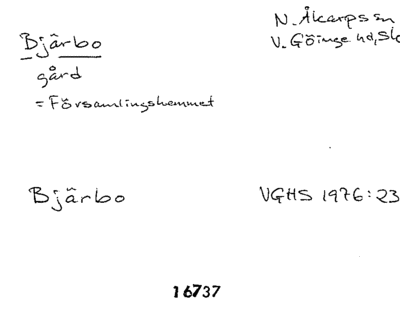 Bjärbo
gård
= Församlingshemmet
N. Åkarps sn
V. Göinge hd, Sk
Bjärbo
VGHS 1976:23
16737